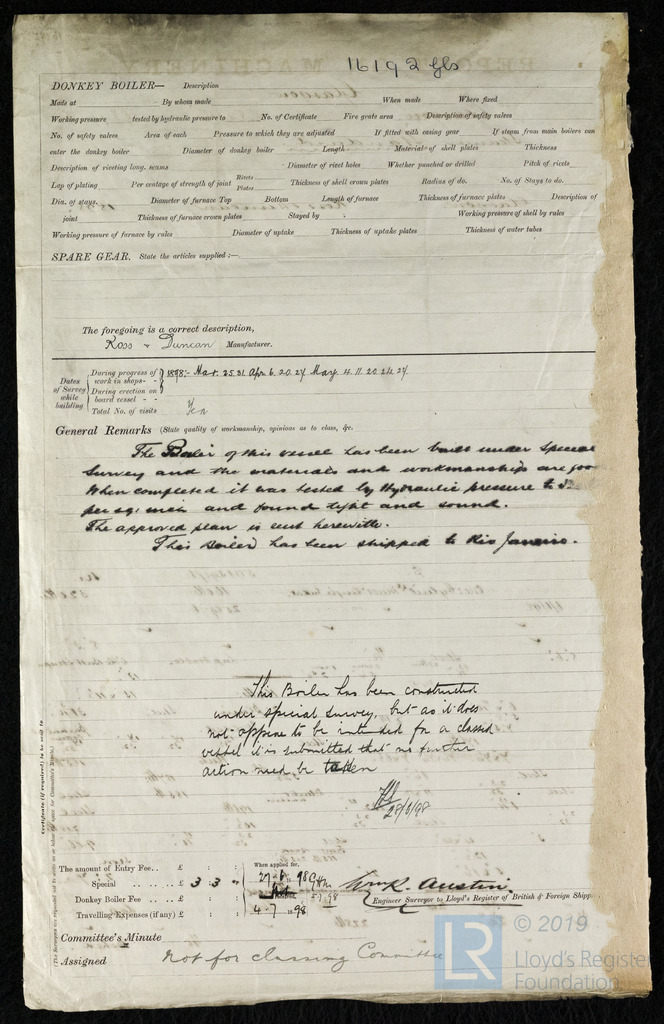 16192 Gls
DONKEY BOILER— Description
Made at By whom made When made Where fixed
Working pressure tested by hydraulic pressure to No. of Certificate Fire grate area Description of safety valves
No. of safety valves Area of each Pressure to which they are adjusted If fitted with easing gear If steam from main boilers can
enter the donkey boiler Diameter of donkey boiler Length Material of shell plates Thickness
Description of riveting long. seams Diameter of rivet holes Whether punched or drilled Pitch of rivets
Lap of plating Per centage of strength of joint Rivets Plates Thickness of shell crown plates Radius of do. No. of Stays to do.
Dia. of stays. Diameter of furnace Top Bottom Length of furnace Thickness of furnace plates Description of
joint Thickness of furnace crown plates Stayed by Working pressure of shell by rules
Working pressure of furnace by rules Diameter of uptake Thickness of uptake plates Thickness of water tubes
SPARE GEAR. State the articles supplied:—
The foregoing is a correct description,
Ross & Duncan Manufacturer.
Dates of Survey while building
During progress of work in shops - - 1898:- Mar. 25.31. Apr 6.20.27 May 4.11.20.24.27
During erection on board vessel - -
Total No. of visits Ten
General Remarks (State quality of workmanship, opinions as to class, &c.
The Boiler of this vessel has been built under Special
Survey and the materials and workmanship are goo
When completed it was tested by Hydraulic pressure to
per sq: inch and found tight and sound.
The approved plan is sent herewith.
This Boiler has been shipped to Rio Janeiro.
This Boiler has been constructed
under special survey, but as it does
not appear to be intended for a classed
vessel it is submitted that no further
action need be taken
28/6/98
Certificate (if required) to be sent to
The amount of Entry Fee.. £ : : When applied for,
Special .. .. .. £ 3 : 3 : 27.6.98
Donkey Boiler Fee .. .. £ : :
Travelling Expenses (if any) £ : : 4.7.1898
Wm R. Austin.
Engineer Surveyor to Lloyd's Register of British & Foreign Shipp
Committee's Minute
Assigned Not for classing Committee
LR © 2019
Lloyd's Register
Foundation